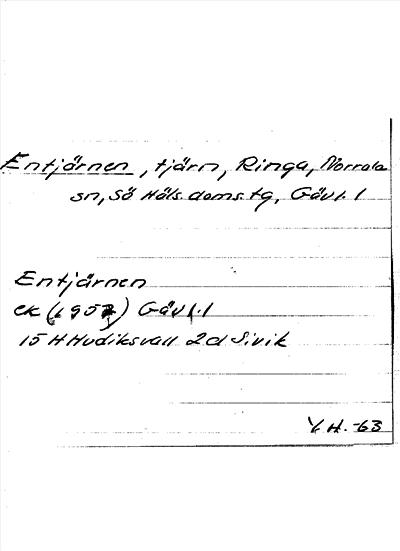 Entjärnen, tjärn, Ringa, Norrala
sn, Sö Häls. doms. tg, Gävl. l
Entjärnen
ek (1957) Gävl. l
15 H Hudiksvall 2d Sivik
Y.H.-63